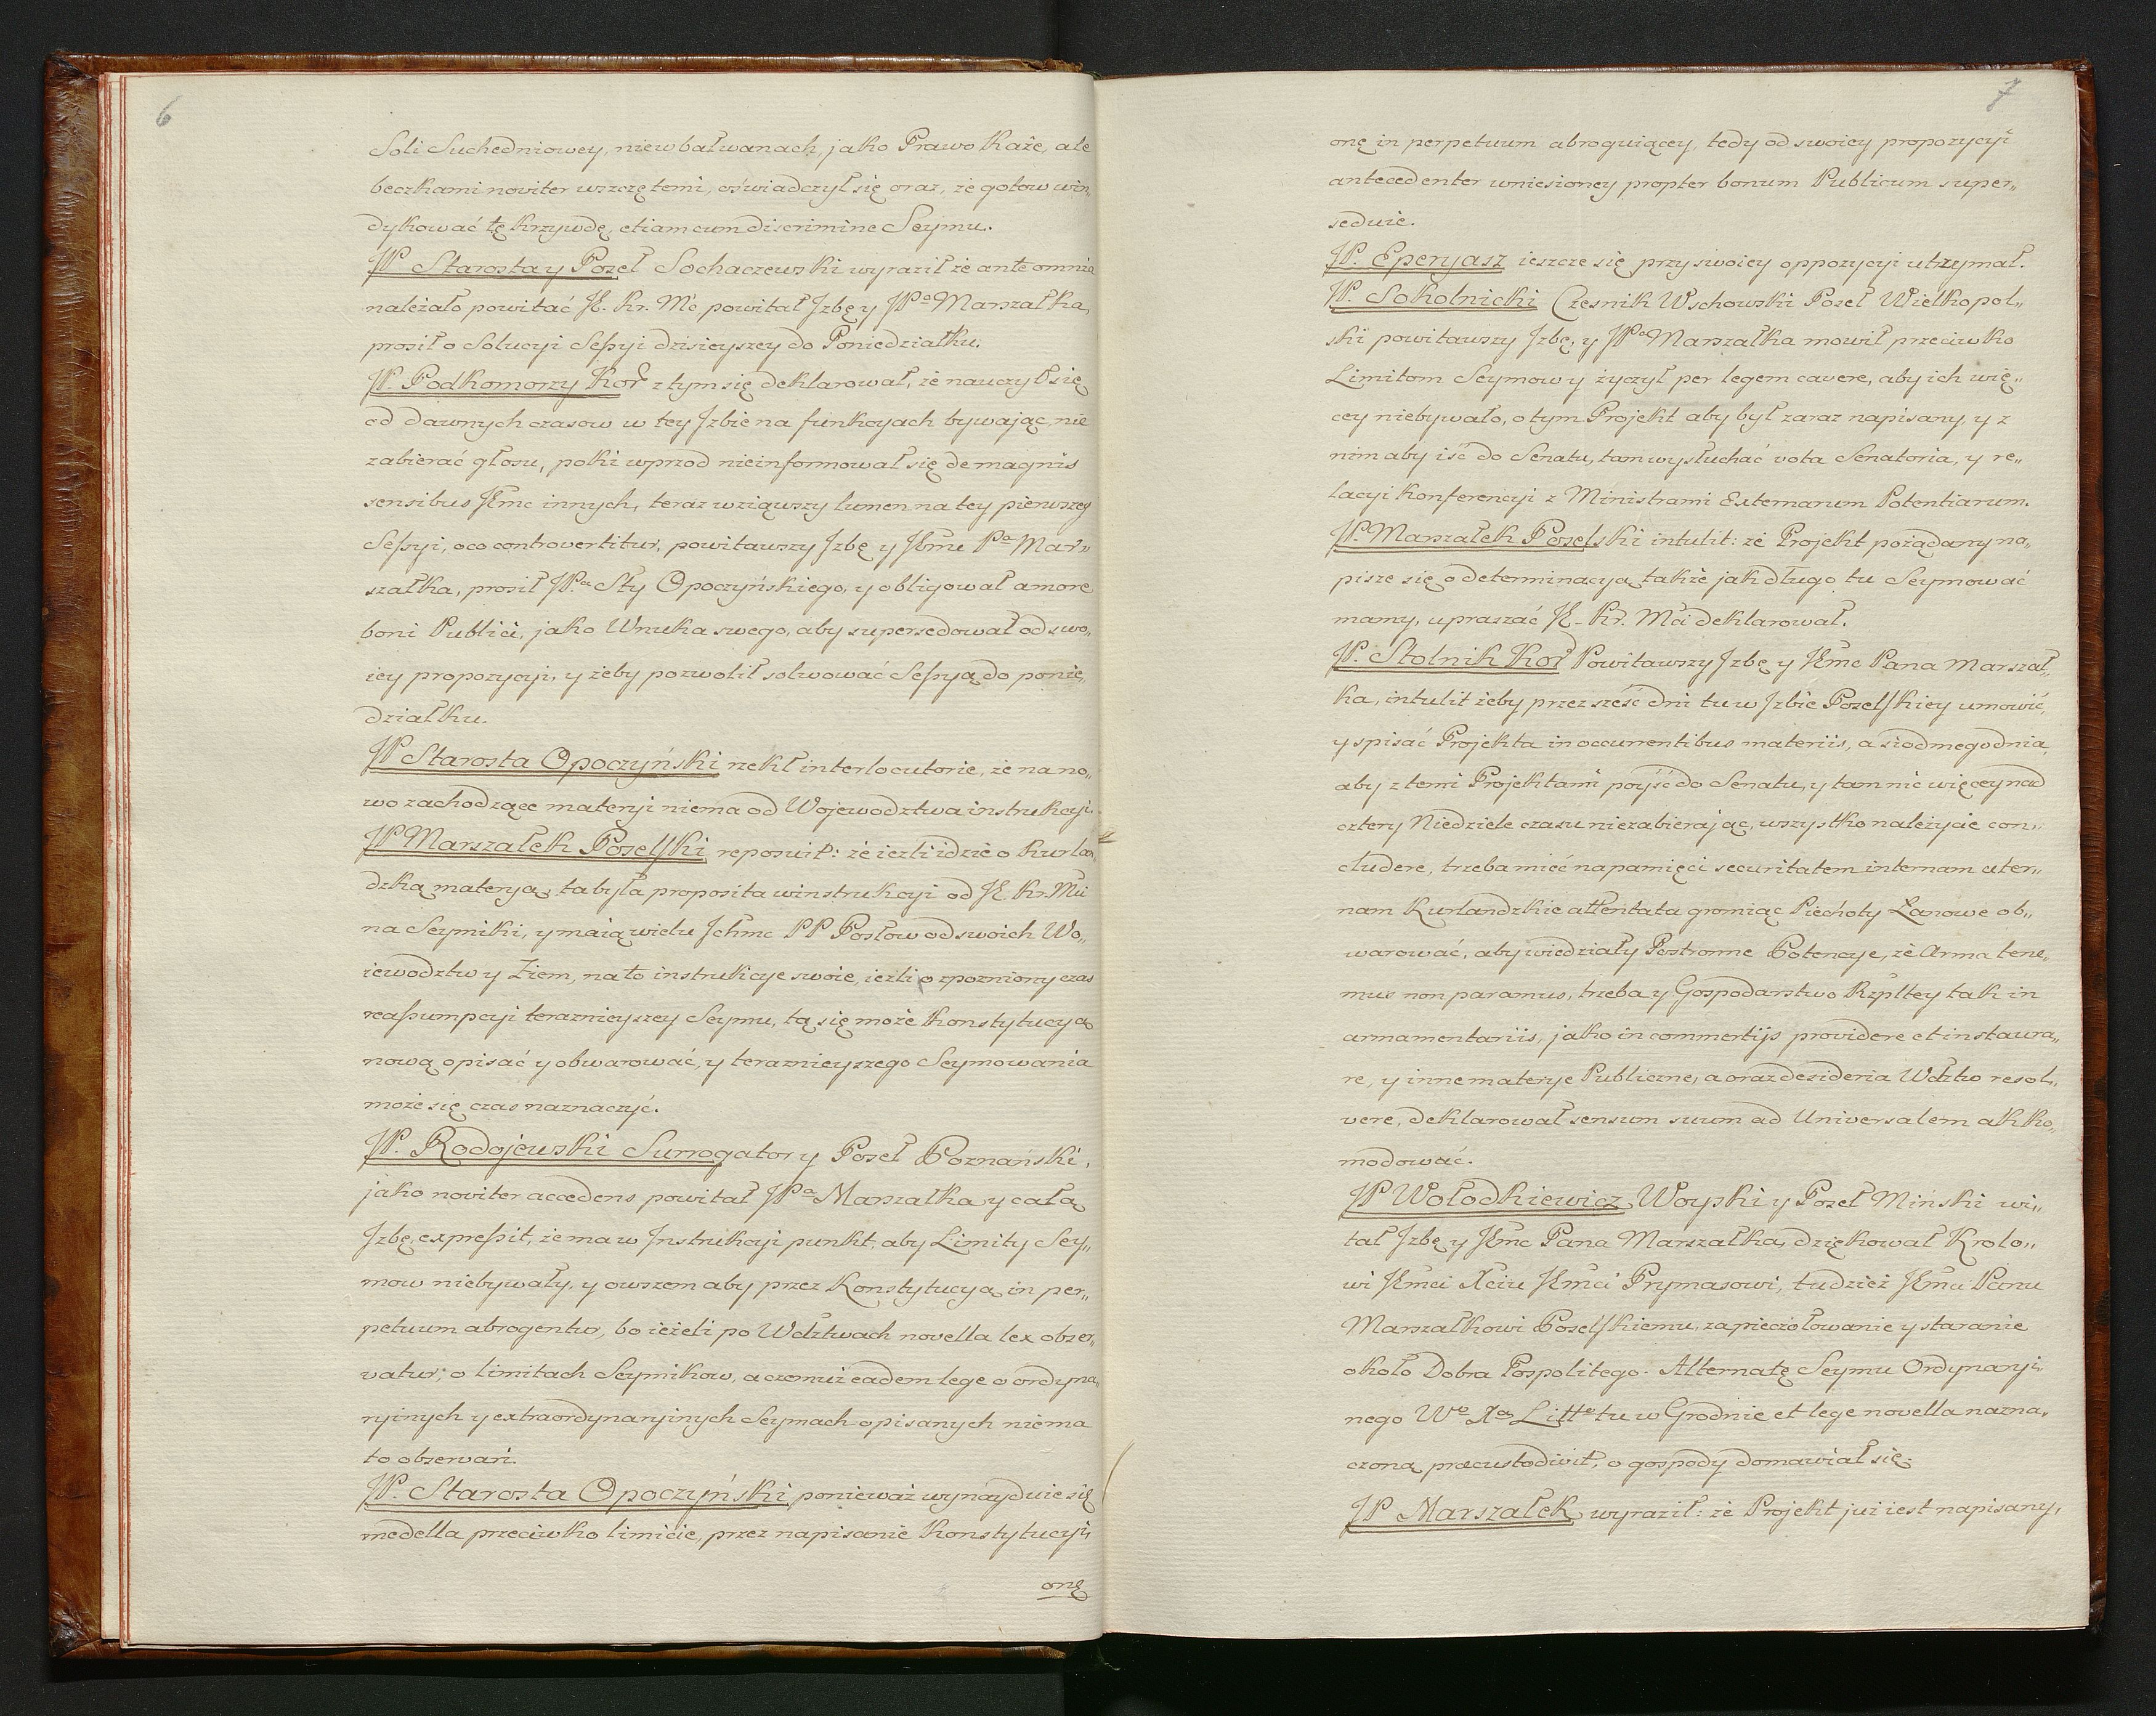 6
Soli Suchedniowey, niew bałwanach, jako Prawo Każe, ale
beczkami noviter wszczętemi, oświadczył się oraz, że gotow win„
dykować tę krzywdę, etiam cum discrimine Seymu.
JP Starosta y Poseł Sochaczewski wyraził że ante omnia
należało powitać JK. Kr. Mć powitał Jzbę y JPa Marszałka,
prosił o Solucyi Sessyi dzisieyszey do Poniedziałku.
JP. Podkomorzy Kor z tym się deklarował, że nauczył się
od dawnych czasow w tey Jzbie na funkcyach bywając, nie
zabierać głosu, poki wprzod nieinformował się de magnis
sensibus JKmc innych, teraz wziąwszy lumen na tey pierwszey
Sessyi, oco controvertitur, powitawszy Jzbę y JKmc Pa Mar„
szałka, prosił JPa Sty Opoczyńskiego, y obligował amore
boni Publici, jako Wnuka swego, aby supersedował od swo„
iey propozycyi, y żeby pozwolił solwować Sessyą do ponie„
działku.
JP Starosta Opoczyński rzekł interlocutorie, że na no„
wo zachodzące materyi niema od Wojewodztwa instrukcyi.
JP Marszałek Poselski reposuit: że iezli idzie o Kurlan„
dzką materyą, ta była proposita w instrukcyi od JK. Kr. Mci
na Seymiki, y maią wielu Jchmc PP Posłow od swoich Wo„
iewodztw y Ziem, na to instrukcye swoie, ieżli o zpozniony czas
reassumpcyi teraznieyszey Seymu, tą się może Konstytucyą
nową opisać y obwarować, y teraznieyszego Seymowania
może się czas naznaczyć.
JP. Rodojewski Surrogator y Poseł Poznański,
jako noviter accedens powitał JPa Marszałka y całą
Jzbę, expressit, że ma w Jnstrukcyi punkt, aby Limity Sey„
mow niebywały, y owszem aby przez Konstytucyą in per„
petuum abrogentur, bo ieżeli po Wdztwach novella lex obser„
vatur, o limitach Seymikow, a czemuż eadem lege o ordyna„
ryinych y extraordynaryinych Seymach opisanych niema
to obserwari.
JP. Starosta Opoczyński ponieważ wynayduie się
medella przeciwko limicie, przez napisanie Konstytucyi,
onę
7
onę in perpetuum abroguiącey, tedy od swoiey propozycyi
antecedenter wniesioney propter bonum Publicum super„
seduie.
JP. Eperyasz ieszcze się przy swoiey oppozycyi utrzymał.
JP. Sokolnicki Czesnik Wschowski Poseł Wielkopol„
ski powitawszy Jzbę, y JPa Marszałka mowił przeciwko
Limitom Seymow y życzył per legem cavere, aby ich wię„
cey niebywało, o tym Projekt aby był zaraz napisany, y z
nim aby iść do Senatu, tam wysłuchać vota Senatoria, y re„
lacyi konferencyi z Ministrami Externarum Potentiarum.
JP. Marszałek Poselski intulit: że Projekt pożądany na„
pisze się o determinacyą także jak długo tu Seymować
mamy, upraszać JK. Kr. Mci deklarował.
JP. Stolnik Kor Powitawszy Jzbę y JKmc Pana Marszał„
ka, intulit żeby przez sześć dni tu w Jzbie Poselskiey umowić,
y spisać Projekta in occurrentibus materiis, a siodmego dnia,
aby z temi Projektami poyść do Senatu, y tam nic więcey nad
cztery Niedziele czasu niezabierając, wszystko należycie con„
cludere, trzeba mieć na pamięci securitatem internam exter„
nam Kurlandzkie attentata gromiąc Piechoty Łanowe ob„
warować, aby wiedziały Postronne Potencye, że Arma tene„
mus non paramus, trzeba y Gospodarstwo Rzpltey tak in
armamentariis, jako in commertijs providere et instaura„
re, y inne materye Publiczne, a oraz desideria Wdztw resol„
vere, deklarował sensum suum ad Universalem akko„
modować.
JP Wołodkiewicz Woyski y Poseł Miński wi„
tał Jzbę y JKmc Pana Marszałka, dziękował Krolo„
wi JKmci Xciu JKmci Prymasowi, tudzież JKmci Panu
Marszałkowi Poselskiemu, za pieczołowanie y staranie
około Dobra Pospolitego. Alternatę Seymu Ordynaryi„
nego Wo Xa Litto tu w Grodnie et lege novella nazna„
czoną praecustodivit, o gospody domawiał się.
JP Marszałek, wyraził: że Projekt już iest napisany,